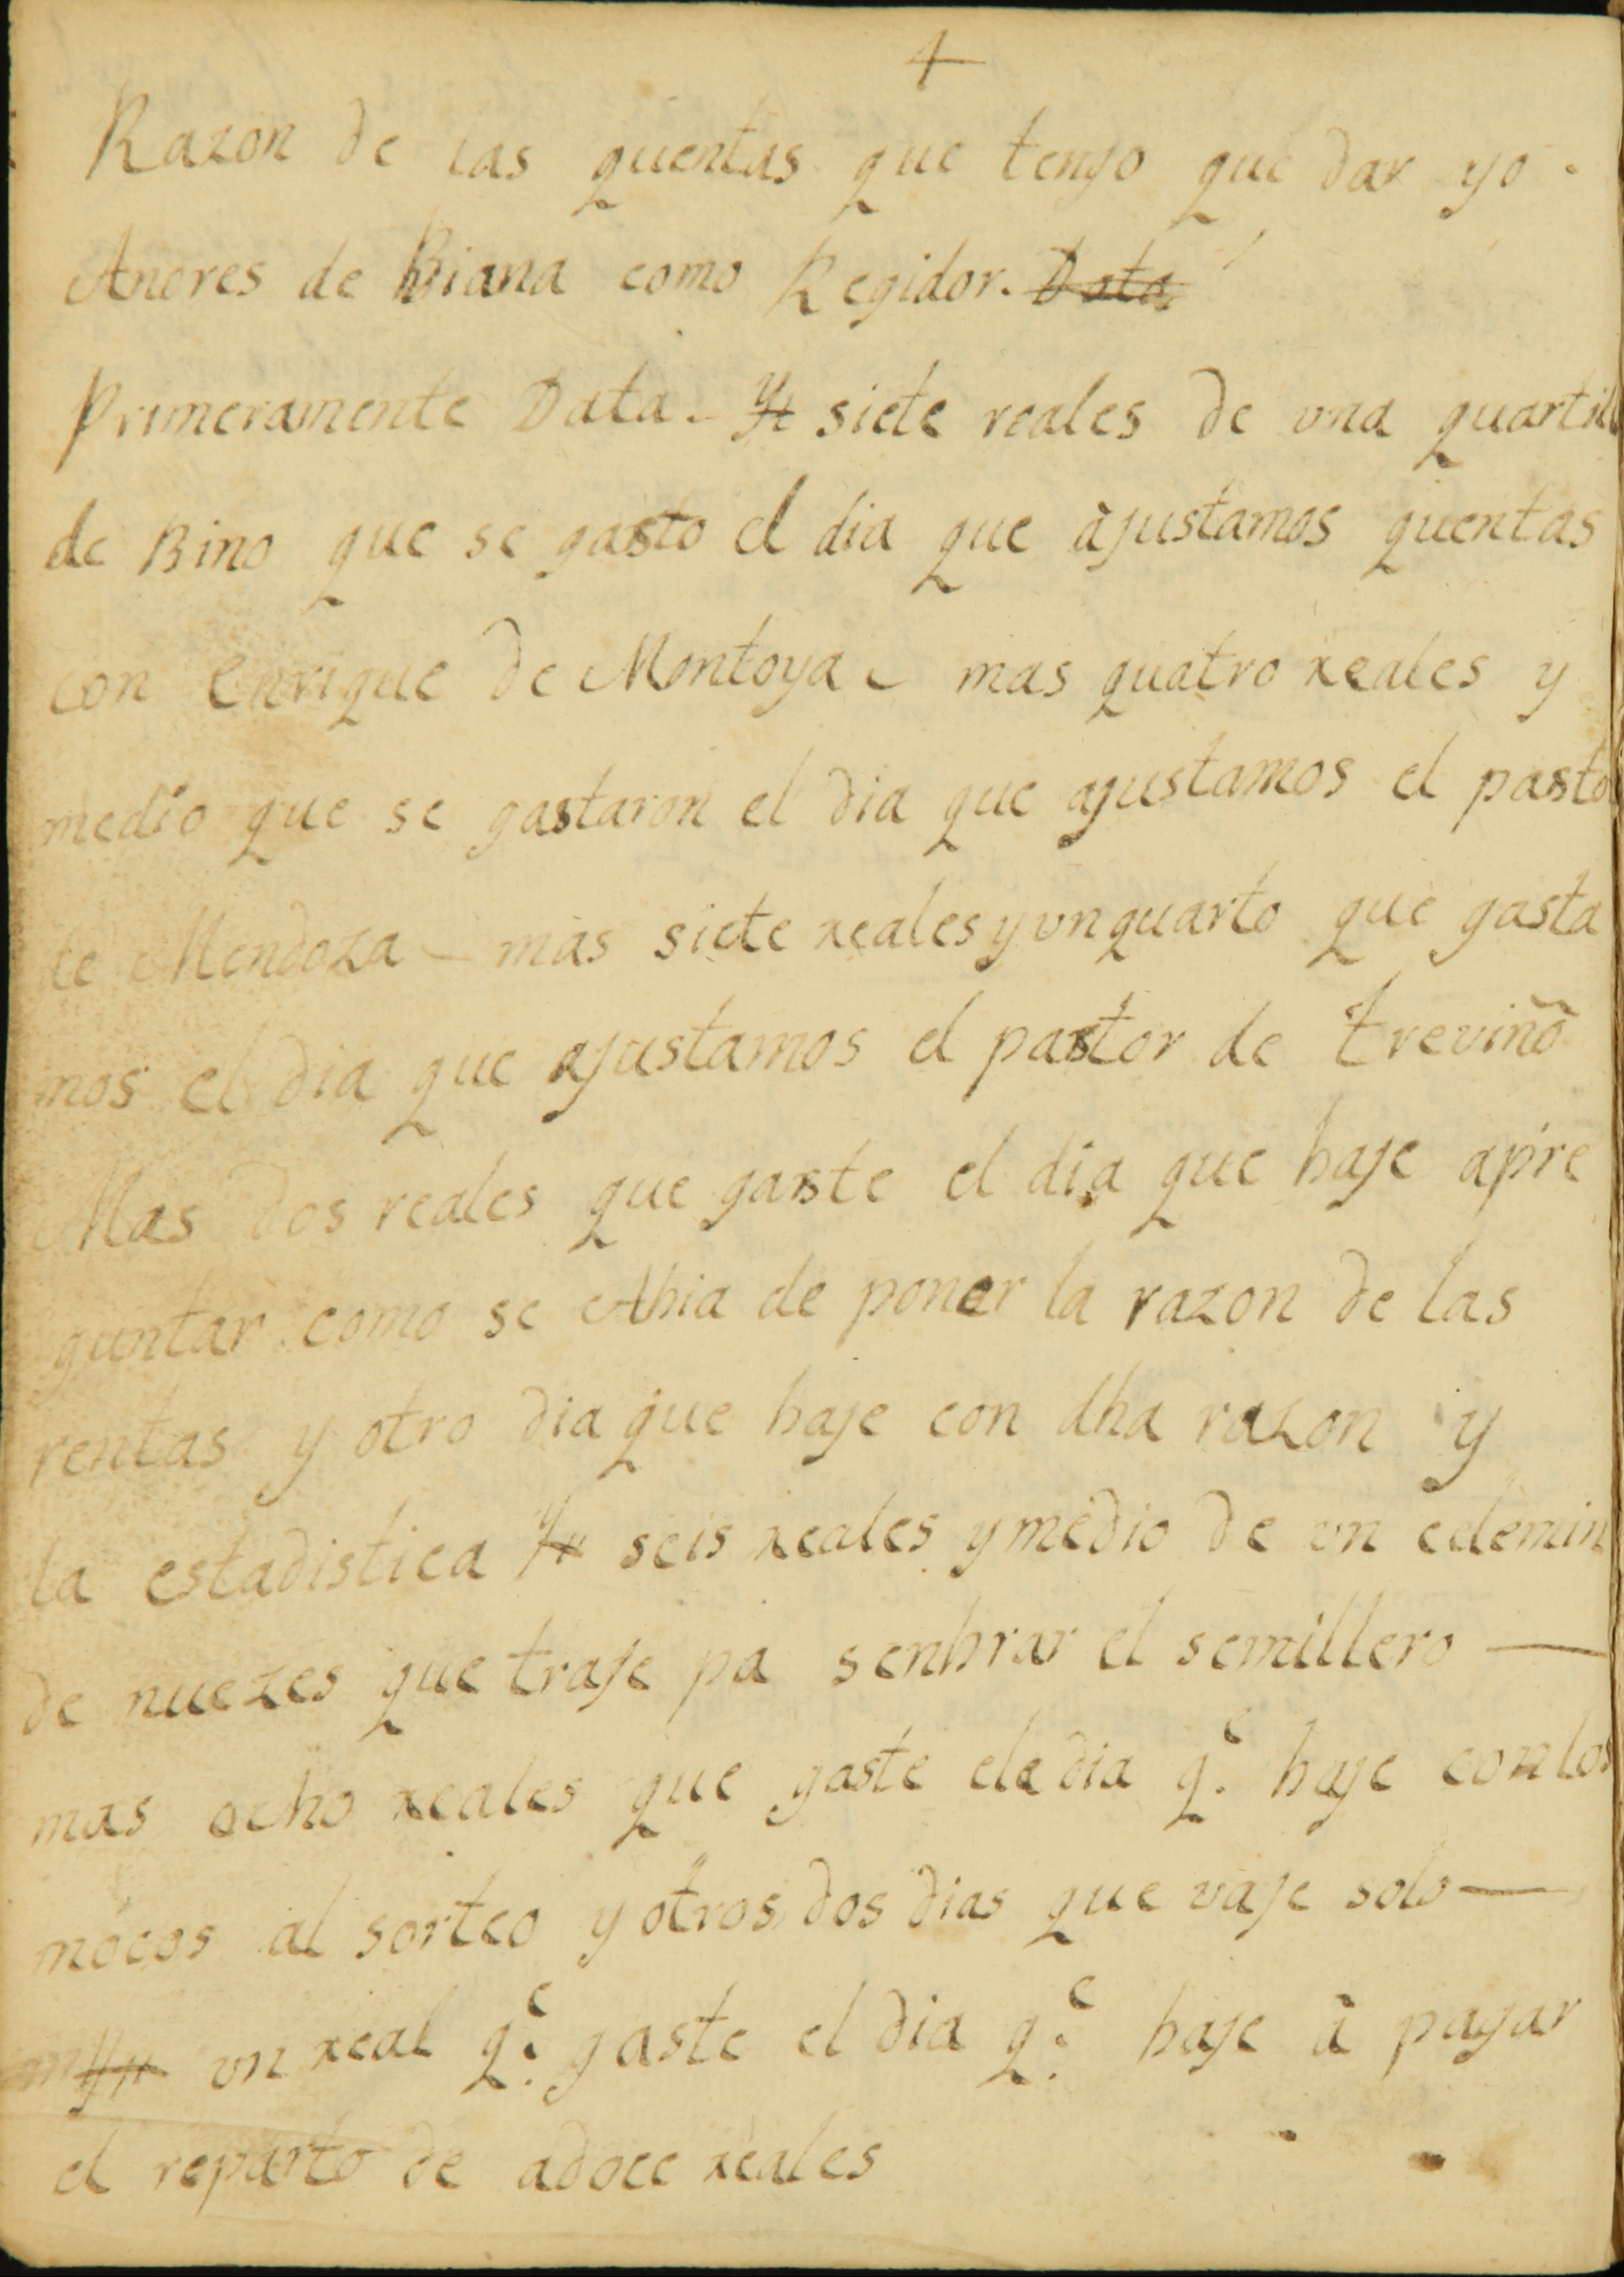 4
Razon de las quentas que tengo que dar yo.
Andres de Biana como Regidor. Data
Primeramente Data. Yt siete reales de vna quartill
de Bino que se gasto el dia que ajustamos quentas
con enrique de Montoya - mas quatro reales y
medio que se gastaron el dia que ajustamos el pasto
de Mendoza - mas siete reales y vn quarto que gasta
mos el dia que ajustamos el pastor de treviño
Mas dos reales que gaste el dia que baje apre
guntar como se Abia de poner la razon de las
rentas y otro dia que baje con dha razon y
la estadistica Yt seis reales y medio de vn celemin
de nuezes que traje pa senbrar el semillero —
mas ocho reales que gaste ele dia q.e baje con los
mocos al sorteo y otros dos dias que vaje solo —
vn real q.e gaste el dia q.e baje à pagar
el reparto de adoce reales